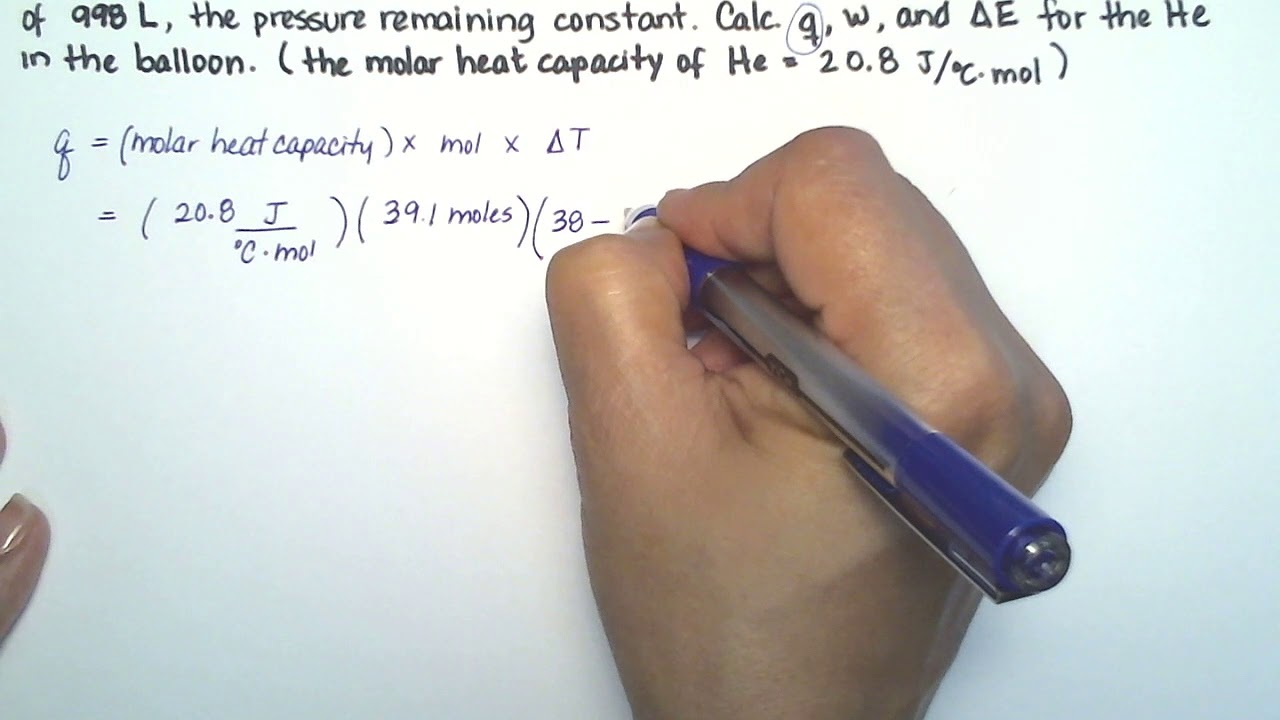 of 998 L, the pressure remaining constant. Calc. q, w, and ΔE for the He
in the balloon. (the molar heat capacity of He = 20.8 J/°C·mol)
q = (molar heat capacity) × mol × ΔT
= (20.8 J/°C·mol)(39.1 moles)(38 −